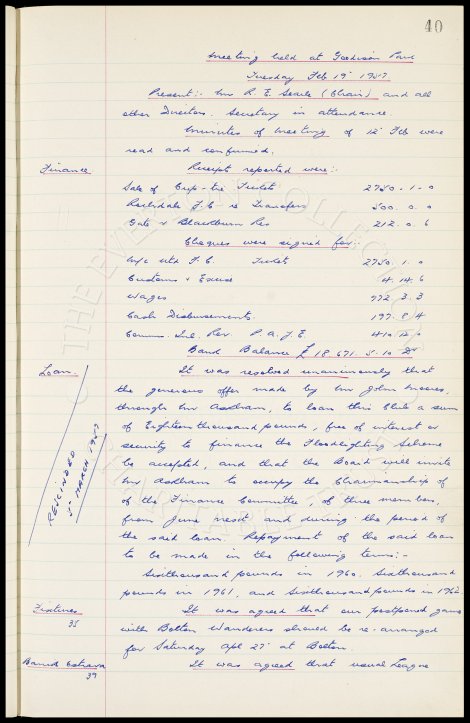 40
Meeting held at Goodison Park
Tuesday Feb 19th 1957
Present:- Mr R. E. Searle (Chair) and all
other Directors. Secretary in attendance.
Minutes of Meeting of 12th Feb were
read and confirmed.
Finance
Receipts reported were:-
Sale of Cup-tie Tickets 2750.1.0
Rochdale F.C. re Transfers 500.0.0
Gate v Blackburn Res 212.0.6
Cheques were signed for:-
M/c Utd F.C. Tickets 2750.1.0
Customs & Excise 4.14.6
Wages 772.3.3
Cash Disbursements. 197.8.4
Comm. Inl. Rev. P.A.Y.E. 410.
Bank Balance £18,671.5.10 Dr
Loan.
It was resolved unanimously that
the generous offer made by Mr John Moores,
through Mr Askham, to loan this Club a sum
of Eighteen thousand pounds, free of interest or
security to finance the Floodlighting Scheme
be accepted, and that the Board will invite
Mr Askham to occupy the Chairmanship of
of the Finance Committee, of three members,
from June next and during the period of
the said loan. Repayment of the said loan
to be made in the following terms:-
RESCINDED
5th MARCH 1957
Sixthousand pounds in 1960. Sixthousand
pounds in 1961, and Sixthousand pounds in 1962.
Fixtures
35
It was agreed that our postponed game
with Bolton Wanderers should be re-arranged
for Saturday Apl 27th at Bolton.
39
It was agreed that usual League
THE EVERTON COLLECTION